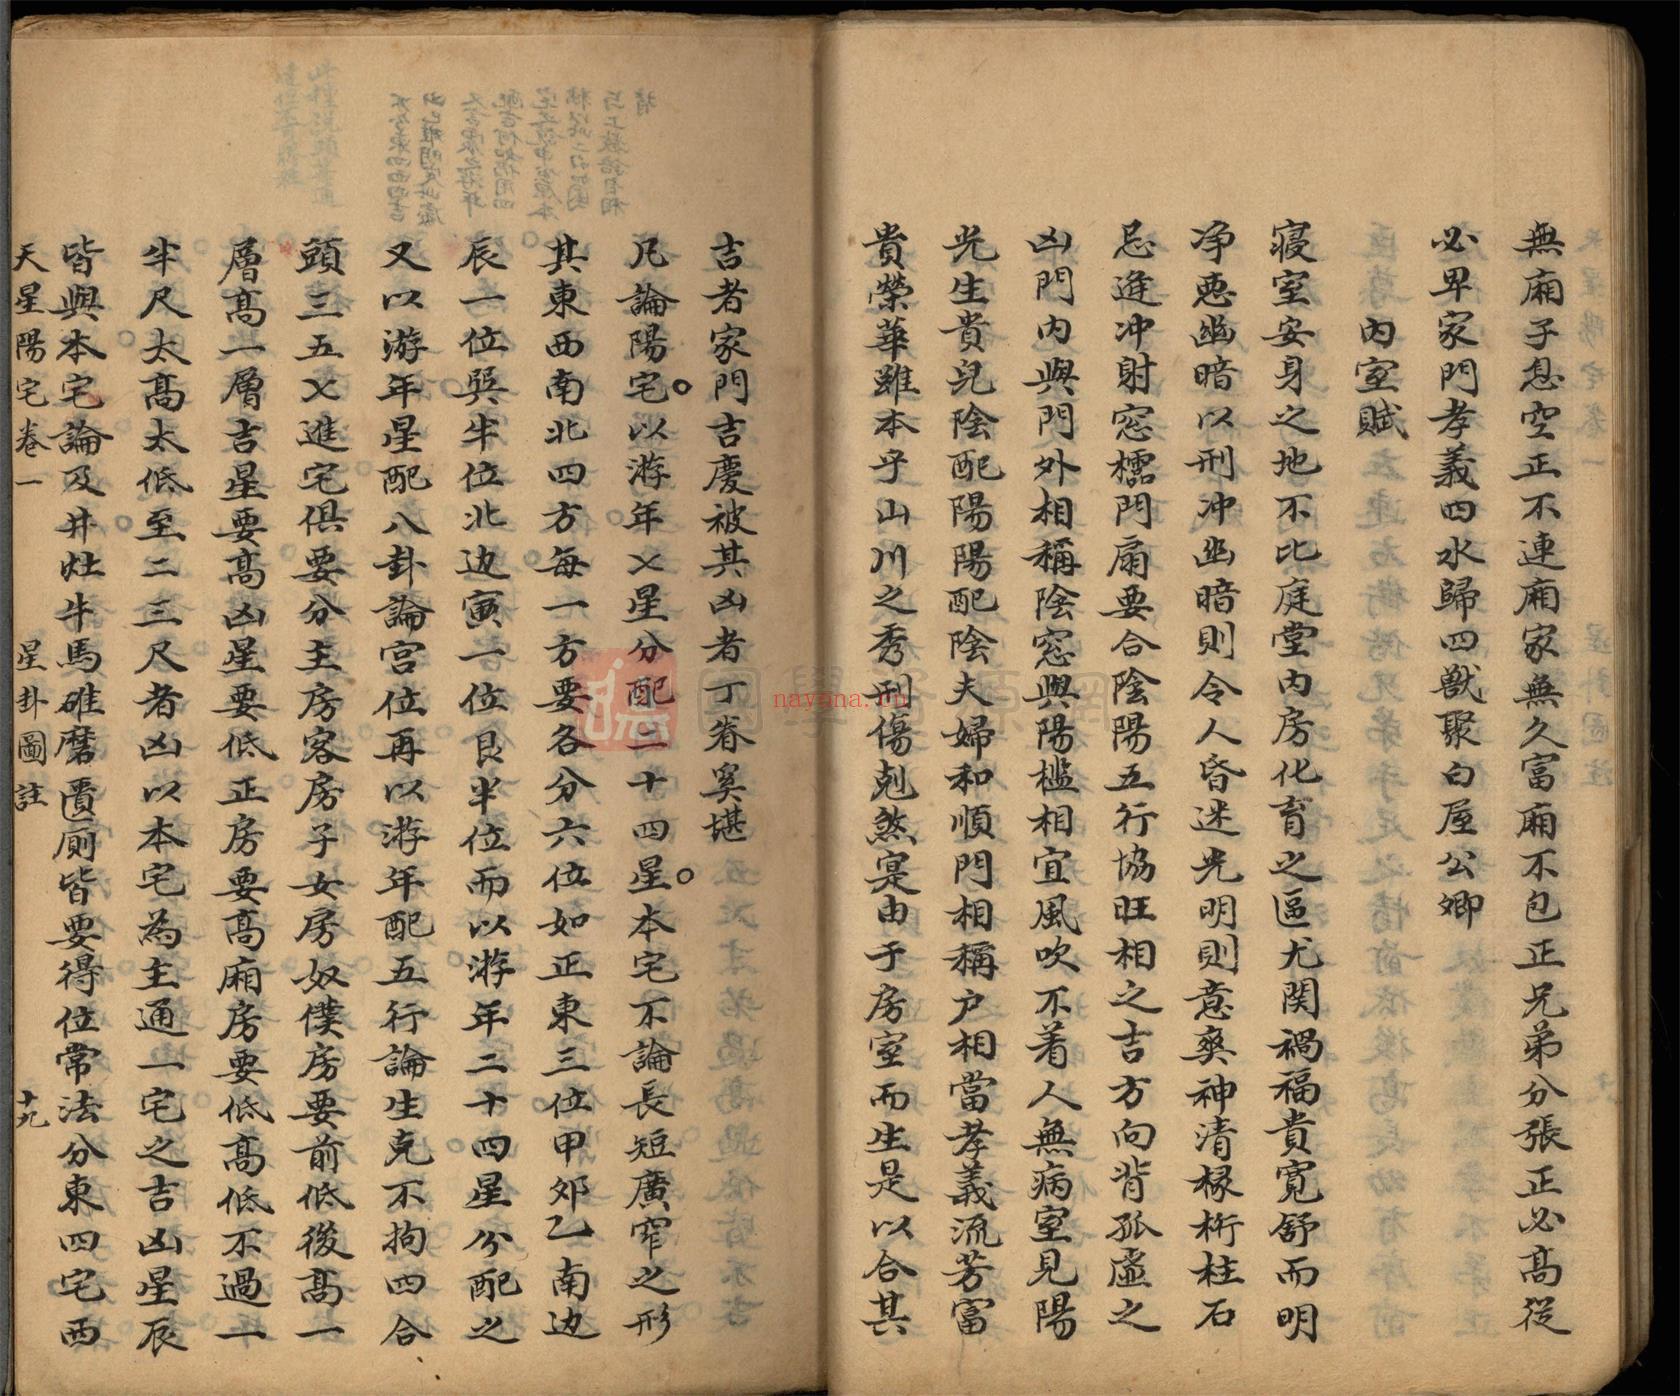 無廂子息空正不連廂家無久富廂不包正兄弟分張正必高從
必卑家門孝義四水歸四獸聚白屋公卿
內室賦
寢室安身之地不比庭堂內房化育之區尤関禍福貴寬舒而明
净惡幽暗以刑冲幽暗則令人昏迷光明則意爽神清椽桁柱石
忌逢冲射窓櫺門扇要合陰陽五行協旺相之吉方向背孤虛之
凶門內與門外相稱陰窓與陽檻相宜風吹不着人無病室見陽
光生貴兒陰配陽陽配陰夫婦和順門相稱户相當孝義流芳富
貴榮華雖本乎山川之秀刑傷剋煞寔由于房室而生是以合其
吉者家門吉慶被其凶者丁眷奚堪
凡論陽宅以游年乂星分配二十四星本宅不論長短廣窄之形
其東西南北四方每一方要各分六位如正東三位甲卯乙南边
辰一位巽半位北边寅一位艮半位而以游年二十四星分配之
又以游年星配八卦論宮位再以游年配五行論生克不拘四合
頭三五乂進宅俱要分主房客房子女房奴僕房要前低後高一
層高一層吉星要高凶星要低正房要高廂房要低高低不過一
半尺太高太低至二三尺者凶以本宅為主通一宅之吉凶星辰
皆與本宅論及井灶牛馬碓磨置厠皆要得位常法分東四宅西
天星陽宅卷一 星卦圖註 十九
nayona.cn